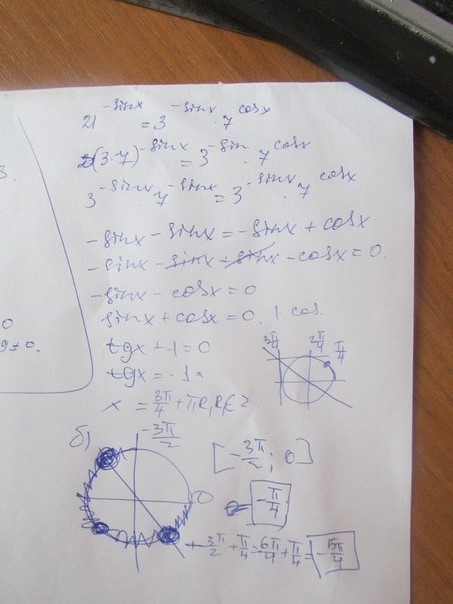 3.
0
9≠0.
21^(-sinx) = 3^(-sinx) · 7^(cosx)
(3·7)^(-sinx) = 3^(-sin) · 7^(cosx)
3^(-sinx) 7^(-sinx) = 3^(-sinx) · 7^(cosx)
-sinx - sinx = -sinx + cosx
-sinx - sinx + sinx - cosx = 0.
-sinx - cosx = 0
sinx + cosx = 0. | : cos.
tgx + 1 = 0
tgx = -1
x = 3π/4 + πk, k∈Z
3π/4 2π/4 π/4
б) -3π/2
[-3π/2; 0]
0
-π/4
-3π/2 + π/4 = -6π/4 + π/4 = -5π/4